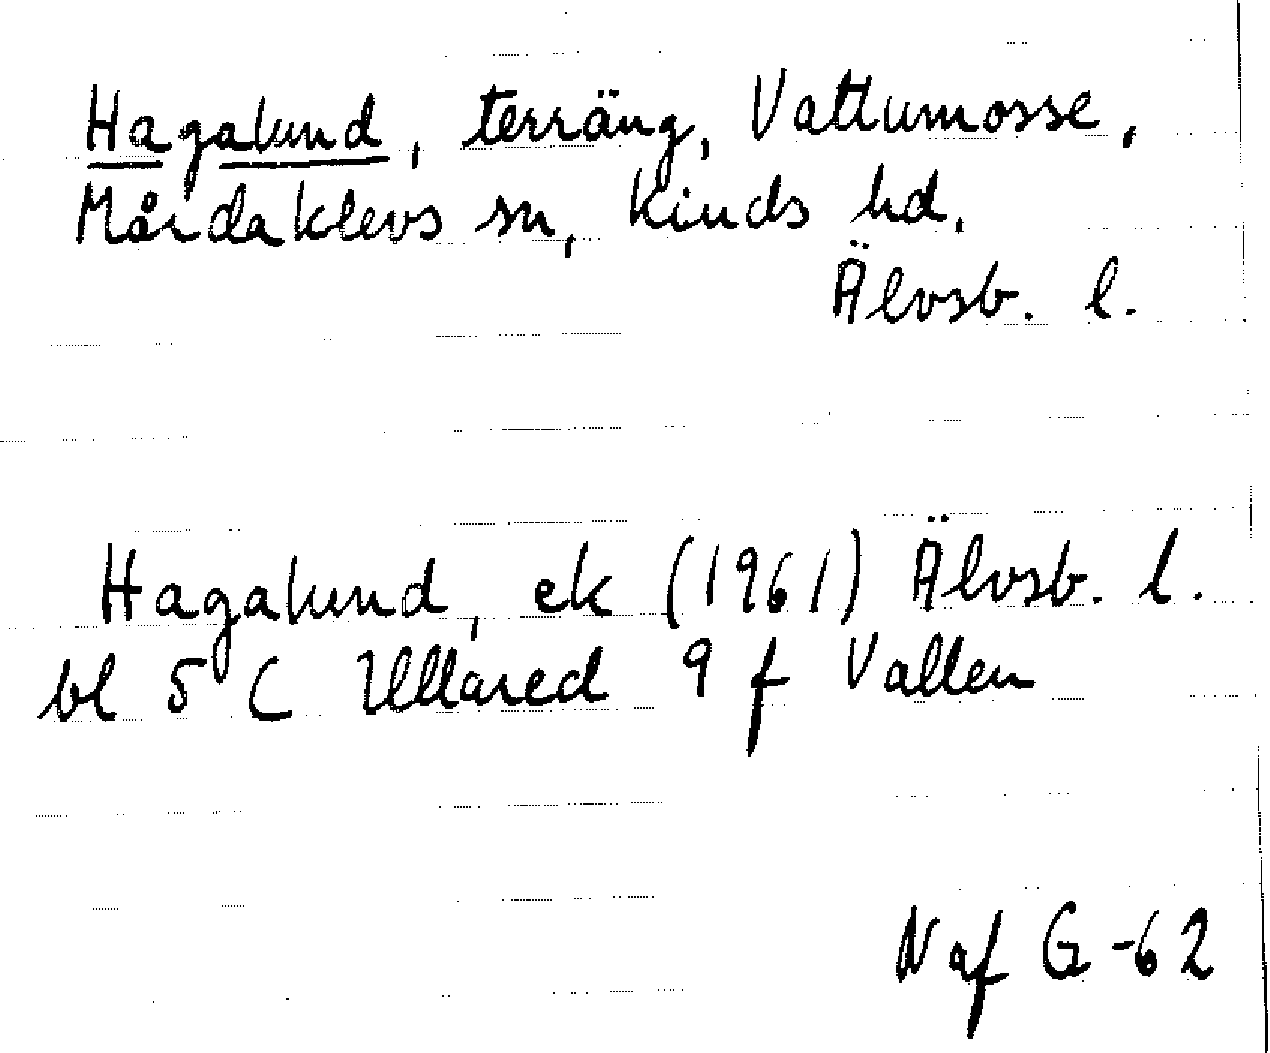 Hagalund, terräng, Vattumosse,
Mårdaklevs sn, Kinds hd,
Älvsb. l.
Hagalund, ek (1961) Älvsb. l.
bl 5 C Ullared 9 f Vallen
N af G -62